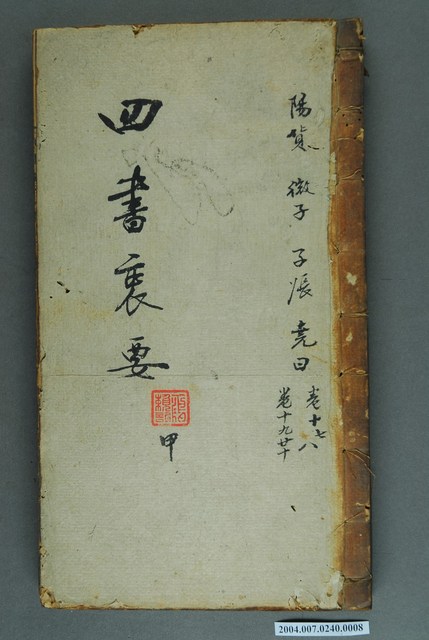 陽貨 微子 子張 堯曰
卷十七八
卷十九廿十
四書裏要
甲
2004.007.0240.0008